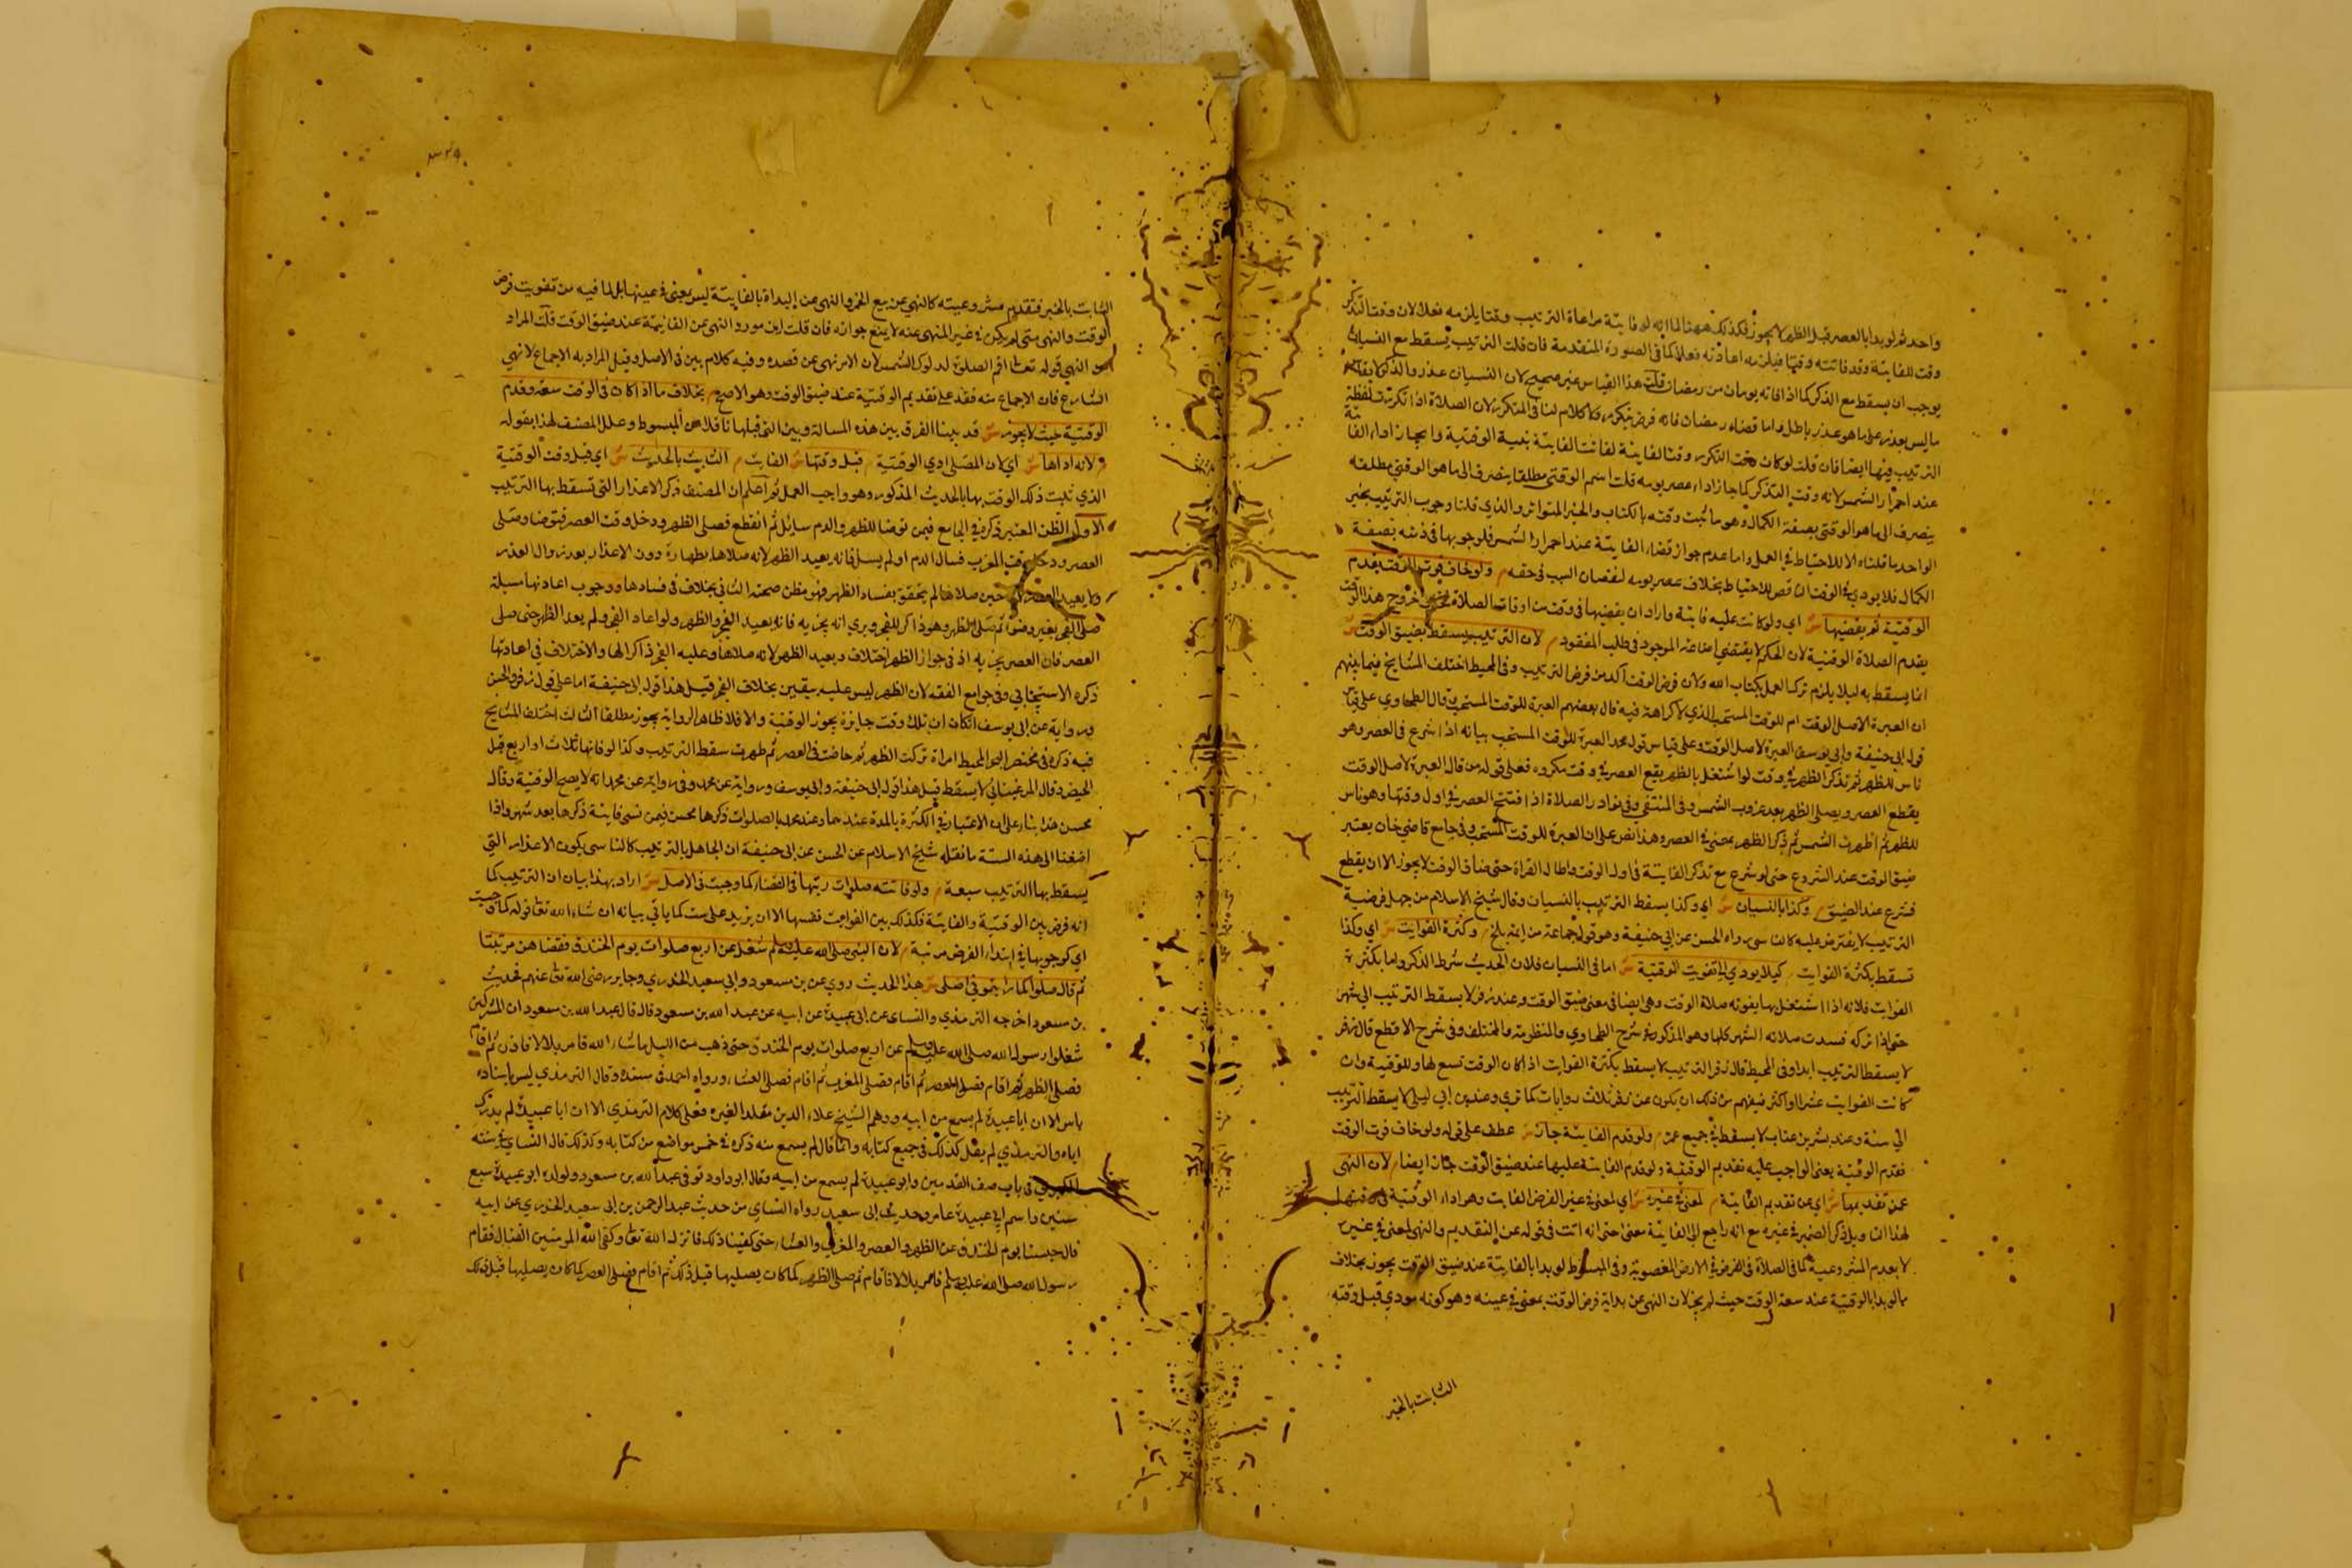 واحد ثم لو بدا بالعصر قبل الظهر لا يجوز فكذلك ههنا لما انه لو فايتة مراعاة الترتيب وقتا يلزمه فعلا لان وقت التذكر
وقت للفايتة وقد فاتته وقتا فيلزمه اعادته فعلا كما في الصورة المتقدمة فان قلت الترتيب يسقط مع النسيان
يوجب ان يسقط مع الذكر كما اذا فاته يومان من رمضان قلت هذا القياس غير صحيح لان النسيان عذر والذكر
ما ليس بعذر على ما هو عذر باطل واما قضاء رمضان فانه فرض متكرر ولا كلام لنا في المتكرر لان الصلاة اذا تكررت
الترتيب فيها ايضا فان قلت لو كان وقت التذكر وقت الفايتة لفاتت الفايتة بنية الوقتية ولجاز اداء الفايتة
عند احمرار الشمس لانه وقت التذكر كما جاز اداء عصر يومه قلت اسم الوقتي مطلقا ينصرف الى ما هو الوقتي مطلقه
ينصرف الى ما هو الوقتي بصفة الكمال وهو ما ثبت وقته بالكتاب والخبر المتواتر والذي قلنا وجوب الترتيب بخبر
الواحد ما قلناه الا للاحتياط في العمل واما عدم جواز قضاء الفايتة عند احمرار الشمس فلوجوبها في ذمته بصفة
الكمال فلا يودي في الوقت الناقص للاحتياط بخلاف عصر يومه لنقصان السبب في حقه م ولو خاف فوت الوقت يقدم
الوقتية ثم يقضيها ش اي ولو كانت عليه فايتة واراد ان يقضيها في وقت من اوقات الصلاة خروج هذا الوقت
يقدم الصلاة الوقتية لان الحكم لا يقتضي اضاعة الموجود في طلب المفقود م لان الترتيب يسقط بضيق الوقت ش
انما يسقط به ليلا يلزم ترك العمل بكتاب الله ولان فرض الوقت آكد من فرض الترتيب وفي المحيط اختلف المشايخ فيما بينهم
ان العبرة لاصل الوقت ام للوقت المستحب الذي لا كراهة فيه قال بعضهم العبرة للوقت المستحب وقال الطحاوي على قياس
قول ابي حنيفة وابي يوسف العبرة لاصل الوقت وعلى قياس قول محمد العبرة للوقت المستحب بيانه اذا شرع في العصر وهو
ناس للظهر ثم تذكر الظهر في وقت لو اشتغل بالظهر يقع العصر في وقت مكروه فعلى قول من قال العبرة لاصل الوقت
يقطع العصر ويصلي الظهر بعد غروب الشمس وفي المنتقى وفي نوادر الصلاة اذا افتتح العصر في اول وقتها وهو ناس
للظهر ثم ذكر الظهر يمضي في العصر وهذا نص على ان العبرة للوقت المستحب وفي جامع قاضي خان يعتبر
ضيق الوقت عند الشروع حتى لو شرع مع تذكر الفايتة في اول الوقت واطال القراة حتى ضاق الوقت لا يجوز الا ان يقطع
فشرع عند الضيق م وكذا بالنسيان ش اي وكذا يسقط الترتيب بالنسيان وقال شيخ الاسلام من جهل فرضية
الترتيب لا يفترض عليه كالناسي رواه الحسن عن ابي حنيفة وهو قول جماعة من ايمة بلخ م وكثرة الفوايت ش اي وكذا
تسقط بكثرة الفوايت م كيلا يودي الى تفويت الوقتية ش اما في النسيان فلان الحديث شرط الذكر واما بكثرة
الفوايت فلانه اذا اشتغل بها يفوته صلاة الوقت وهي ايضا في معنى ضيق الوقت وعند زفر لا يسقط الترتيب الى شهر
حتى اذا تركه فسدت صلاته الشهر كلها وهو المذكور في شرح الطحاوي والمنظومة والمختلف وفي شرح الاقطع قال زفر
لا يسقط الترتيب ابدا وفي المحيط قال زفر الترتيب لا يسقط بكثرة الفوايت اذا كان الوقت تسع لها وللوقتية وان
كانت الفوايت عشرا او اكثر ففهم من ذلك ان يكون عن زفر ثلاث روايات كما تري وعند ابن ابي ليلى لا يسقط الترتيب
الى سنة وعند بشر بن غياث لا يسقط في جميع عمره م ولو قدم الفايتة جاز ش عطف على قوله ولو خاف فوت الوقت
تقدم الوقتية يعني الواجب عليه تقديم الوقتية ولو قدم الفايتة عليها عند ضيق الوقت جاز ايضا م لان النهى
عن تقديمها ش اي عن تقديم الفايتة م لمعنى في غيره ش اي لمعنى في غير الفرض الفايت وهو اداء الوقتية في وقتها
لا يعدم المشروعية كما في الصلاة في الفرض في الارض المغصوبة وفي المبسوط لو بدا بالفايتة عند ضيق الوقت يجوز بخلاف
ما لو بدا بالوقتية عند سعة الوقت حيث لم يجز لان النهى عن بداية فرض الوقت بمعنى في عينه وهو كونه مودي قبل وقته
الثابت بالخبر
الثابت بالخبر فتقدم مشروعيته كالنهي عن بيع الخمر والنهي عن البداة بالفايتة ليس بمعنى في عينها بل لما فيه من تفويت فرض
الوقت والنهى متى لم يكن في عين المنهى عنه لا يمنع جوازه فان قلت اين مورد النهى عن الفايتة عند ضيق الوقت قلت المراد
من النهي قوله تعالى اقم الصلوة لدلوك الشمس لان الامر نهى عن قصده وفيه كلام بين في الاصل وقيل المراد به الاجماع لا نهي
الشارع فان الاجماع منعقد على تقديم الوقتية عند ضيق الوقت وهو الاصح م بخلاف ما اذا كان في الوقت سعة وقدم
الوقتية حيث لا يجوز ش قد بينا الفرق بين هذه المسالة وبين التي قبلها ناقلا من المبسوط وعلل المصنف لهذا بقوله
م لانه اداها ش اي لان المصلى ادي الوقتية م قبل وقتها ش الفايت م الثابت بالحديث ش اي قبل وقت الوقتية
الذي ثبت ذلك الوقت بها بالحديث المذكور وهو واجب العمل ثم اعلم ان المصنف ذكر الاعذار التي تسقط بها الترتيب
الاول الظن المعتبر ذكره في الجامع فيمن توضا للظهر والدم سايل ثم انقطع فصلى الظهر ودخل وقت العصر فتوضا وصلى
العصر ودخل وقت المغرب فسال الدم او لم يسل فانه يعيد الظهر لانه صلاها بطهارة دون الاعذار بعد زوال العذر
ولا يعيد العصر لانه حين صلاها لم يتحقق بفساد الظهر فهو مظن صحته الثاني بخلاف في فسادها ووجوب اعادتها مسيلة
صلى الفجر بغير وضوء ثم صلى الظهر وهو ذاكر للفجر ويري انه يجزيه فانه يعيد الفجر والظهر ولو اعاد الفجر ولم يعد الظهر حتى صلى
العصر فان العصر يجزيه اذ في جواز الظهر اختلاف ويعيد الظهر لانه صلاها وعليه الفجر ذاكرا لها والاختلاف في اعادتها
ذكره الاسبيجابي وفي جوامع الفقه لان الظهر ليس عليه بيقين بخلاف الفجر قيل هذا قول ابي حنيفة اما على قول زفر والحسن
ورواية عن ابي يوسف ان كان ان ذلك وقت جايزة يجوز الوقتية والا فلا ظاهر الرواية يجوز مطلقا الثالث اختلف المشايخ
فيه ذكره في مختصر البحر المحيط امراة تركت الظهر ثم حاضت في العصر ثم طهرت سقط الترتيب وكذا لو فاتها ثلاث او اربع قبل
الحيض وقال المرغيناني لا يسقط قيل هذا قول ابي حنيفة وابي يوسف ورواية عن محمد وفي رواية عن محمد انه لا يصح الوقتية وقال
محسن هذا بناء على ان الاعتبار في الكثرة بالمدة عندهما وعند محمد بالصلوات ذكرها محسن فيمن نسي فايتة ذكرها بعد شهر واذا
اضفنا الى هذه الستة ما نقله شيخ الاسلام عن الحسن عن ابي حنيفة ان الجاهل بالترتيب كالناسي يكون الاعذار التي
يسقط بها الترتيب سبعة م ولو فاتته صلوات رتبها في القضاء كما وجبت في الاصل ش اراد بهذا بيان ان الترتيب كما
انه فرض بين الوقتية والفايتة فكذلك بين الفوايت نفسها الا ان يزيد على ست كما ياتي بيانه ان شاء الله تعالى قوله كما وجبت
اي كوجوبها في ابتداء الفرض مرتبة م لان النبي صلى الله عليه وسلم شغل عن اربع صلوات يوم الخندق فقضاهن مرتبتا
ثم قال صلوا كما رايتموني اصلي ش هذا الحديث روي عن بن مسعود وابي سعيد الخدري وجابر رضي الله تعالى عنهم فحديث
بن مسعود اخرجه الترمذي والنساى عن ابي عبيدة عن ابيه عن عبد الله بن مسعود قال قال عبد الله بن مسعود ان المشركين
شغلوا رسول الله صلى الله عليه وسلم عن اربع صلوات يوم الخندق حتى ذهب من الليل ما شاء الله فامر بلالا فاذن ثم اقام
فصلى الظهر ثم اقام فصلى العصر ثم اقام فصلى المغرب ثم اقام فصلى العشاء ورواه احمد في مسنده وقال الترمذي ليس باسناده
باس الا ان ابا عبيدة لم يسمع من ابيه ووهم الشيخ علاء الدين مقلدا لغيره فعلى كلام الترمذي الا ان ابا عبيدة لم يدرك
اباه والترمذي لم يقل كذلك في جميع كتابه وانما قال لم يسمع منه ذكره في خمس مواضع من كتابه وكذلك قال النساي في سننه
الكبري في باب صف القدمين وابو عبيدة لم يسمع من ابيه وقال ابو داود توفي عبد الله بن مسعود ولولده ابو عبيدة سبع
سنين واسم ابي عبيدة عامر وحديث ابي سعيد رواه النساي من حديث عبد الرحمن بن ابي سعيد الخدري عن ابيه
قال حبسنا يوم الخندق عن الظهر والعصر والمغرب والعشاء حتى كفينا ذلك فانزل الله تعالى وكفى الله المومنين القتال فقام
رسول الله صلى الله عليه وسلم فامر بلالا فاقام ثم صلى الظهر كما كان يصليها قبل ذلك ثم اقام فصلى العصر كما كان يصليها قبل ذلك